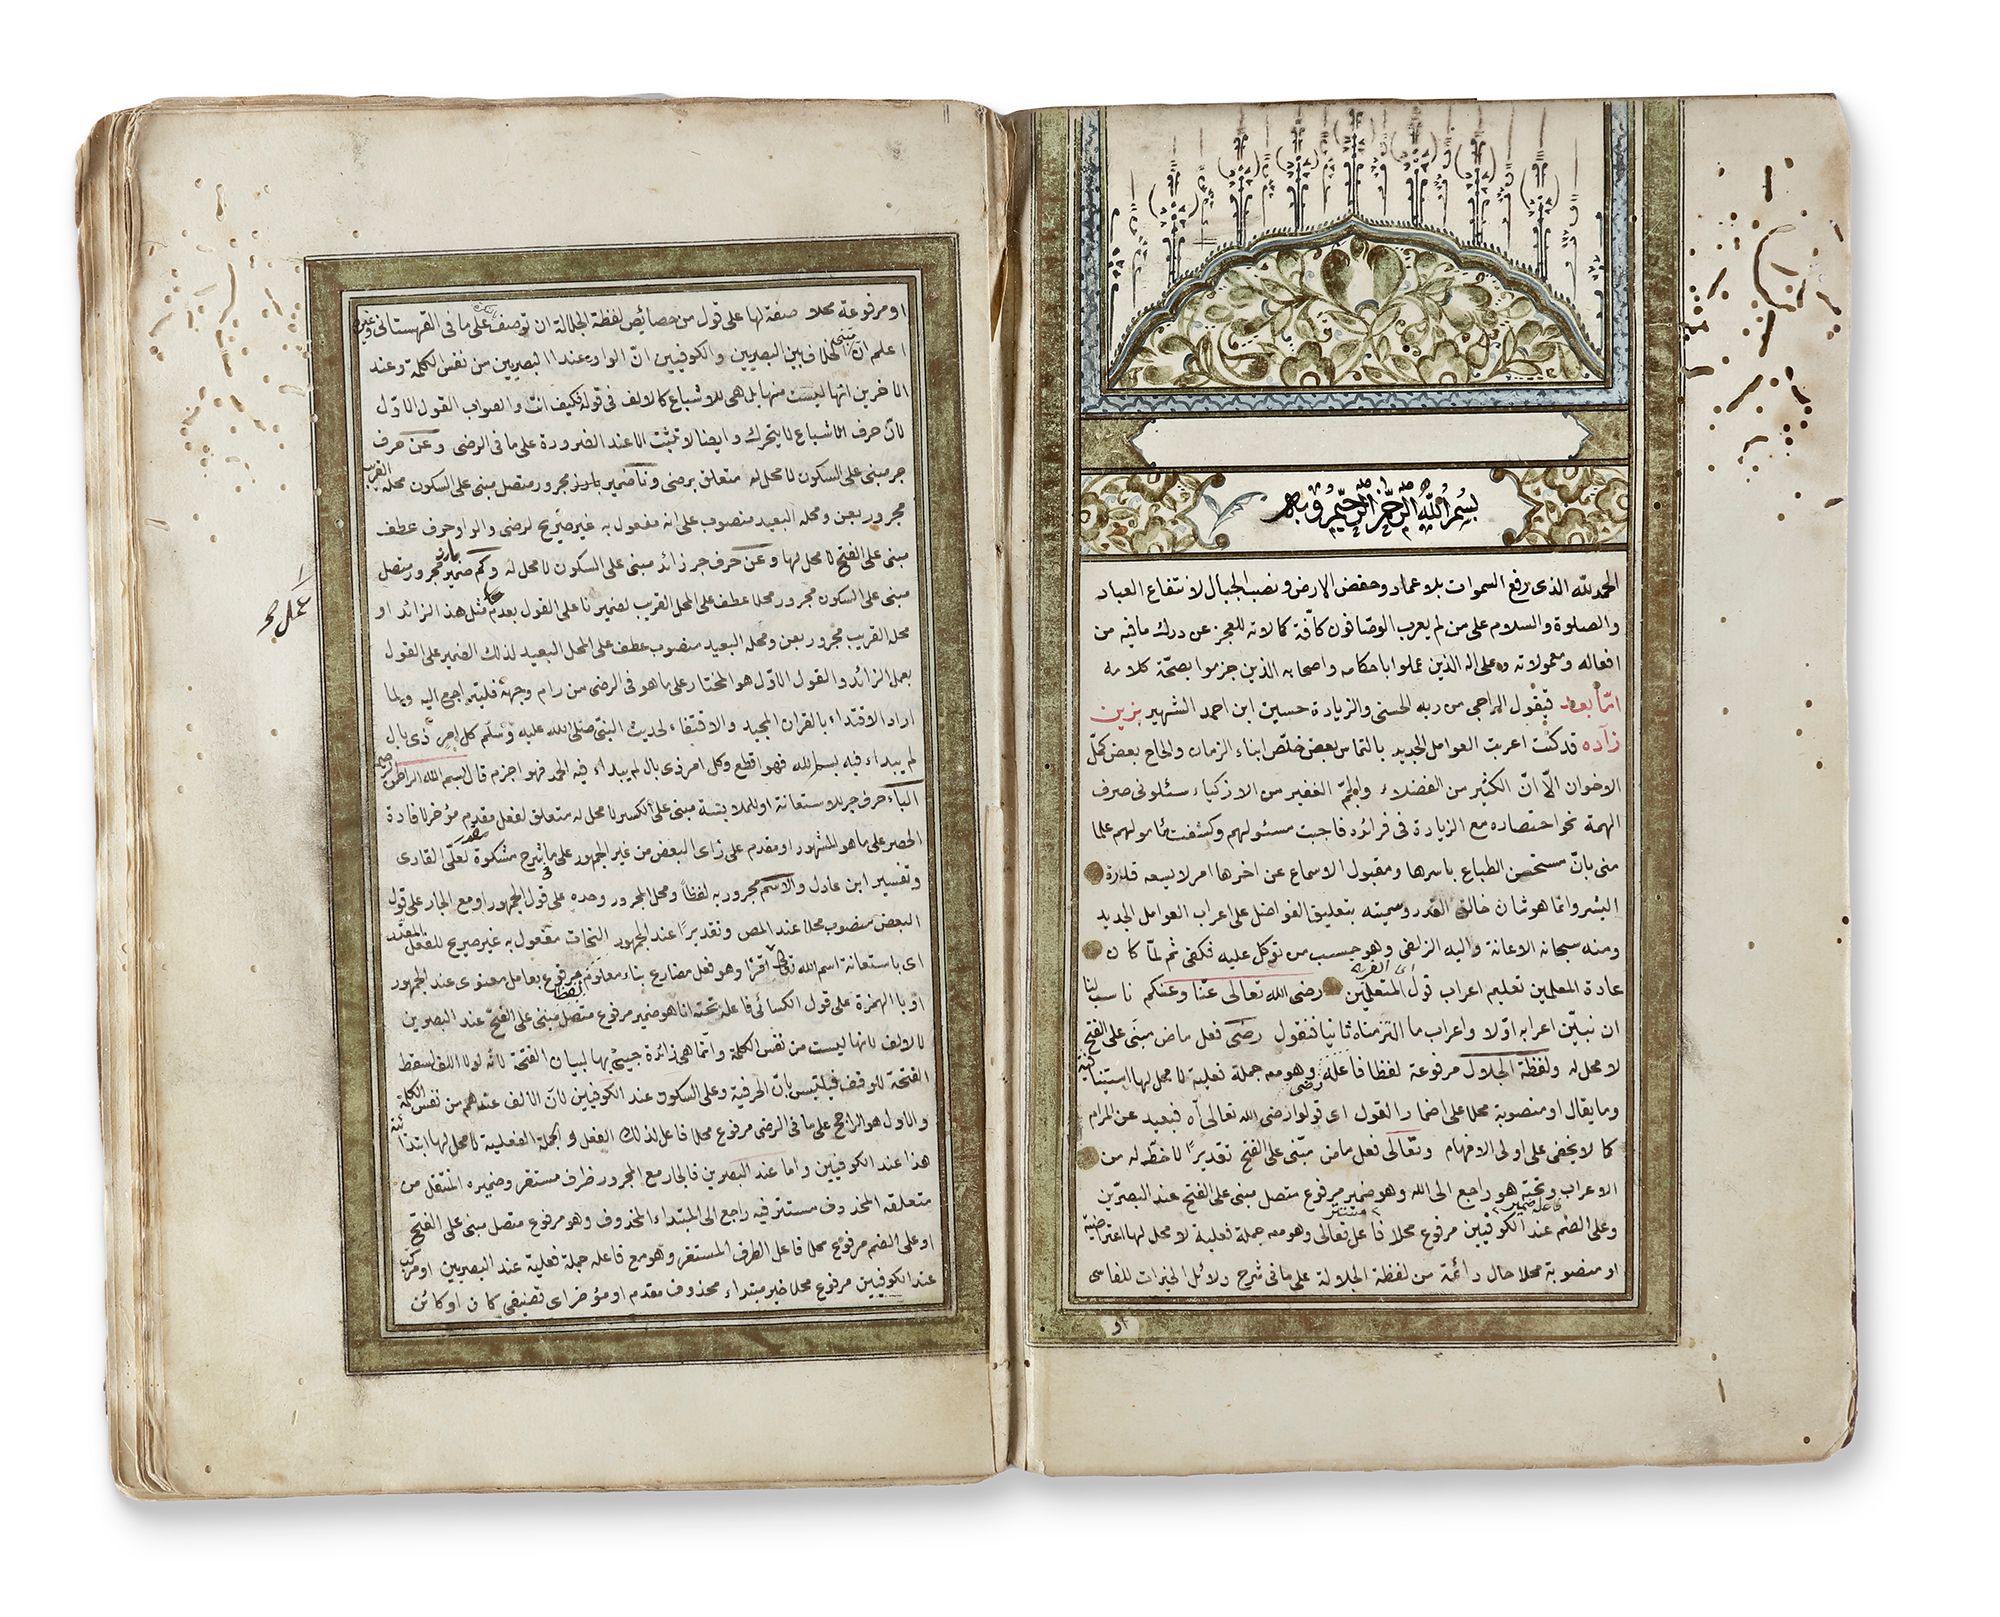 بسم الله الرحمن الرحيم وبه
الحمد لله الذى رفع السموات بلا عماد وخفض الارض ونصب الجبال لانتفاع العباد
والصلوة والسلام على من لم يعرب الوصافون كافة كمالاته للعجز عن درك ما فيه من
افعاله ومعمولاته وعلى اله الذين عملوا باحكامه واصحابه الذين جزموا بصحة كلامه
امّا بعد فيقول الراجى من ربه الحسنى والزيادة حسين ابن احمد الشهير بزين
زاده قد كنت اعربت العوامل الجديد بالتماس بعض خلّص ابناء الزمان والحاح بعض كمّل
الاخوان الّا انّ الكثير من الفضلاء والجمّ الغفير من الاذكياء سئلونى صرف
الهمة نحو اختصاره مع الزيادة فى فرائده فاجبت مسئولهم وكشفت مأمولهم علما
منى بانّ مستحسن الطباع باسرها ومقبول الاسماع عن اخرها امر لا يسعه قدرة
البشر وانما هو شان خالق القدر وسميته بتعليق الفواضل على اعراب العوامل الجديد
ومنه سبحانه الاعانة واليه الزلفى وهو حسب من توكل عليه فكفى ثم لمّا كان
عادة المعلمين تعليم اعراب قول المتعلمين رضى الله تعالى عنّا وعنكم ناسب لنا
ان نبيّن اعرابه اوّلا واعراب ما التزمناه ثانيا فنقول رضى فعل ماض مبنى على الفتح
لا محل له ولفظة الجلال مرفوعة لفظا فاعله وهو معه جملة فعلية لا محل لها استينافية
وما يقال او منصوبة محلا على اضمار القول اى قولوا رضى الله تعالى آه فبعيد عن المرام
كما لا يخفى على اولى الافهام وتعالى فعل ماض مبنى على الفتح تقديرًا لا حظّ له من
الاعراب وتحته هو راجع الى الله وهو ضمير مرفوع متصل مبنى على الفتح عند البصريين
وعلى الضم عند الكوفيين مرفوع محلا فاعل تعالى وهو معه جملة فعلية لا محل لها اعتراضية
او منصوبة محلا حال دائمة من لفظة الجلالة على ما فى شرح دلائل الخيرات للفاسى
او
او مرفوعة محلا صفة لها على قول من خصائص لفظة الجلالة ان توصف على ما فى القهستانى وغيره
اعلم ان الخلاف بين البصريين والكوفيين انّ الواو عند البصريين من نفس الكلمة وعند
الاخرين انها ليست منها بل هى للاشباع كالالف فى قوله فكيف انت والصواب القول الاوّل
لانّ حرف الاشباع لا يتحرك وايضا لا تثبت الا عند الضرورة على ما فى الرضى وعن حرف
جر مبنى على السكون لا محل له متعلق برضى ونا ضمير بارز مجرور متصل مبنى على السكون محله القريب
مجرور بعن ومحله البعيد منصوب على انه مفعول به غير صريح لرضى والواو حرف عطف
مبنى على الفتح لا محل لها وعن حرف جر زائد مبنى على السكون لا محل له وكم ضمير بارز مجرور متصل
مبنى على السكون مجرور محلا عطف على المحل القريب لضمير نا على القول بعدم عمل مثل هذا الزائد او
محله القريب مجرور بعن ومحله البعيد منصوب عطف على المحل البعيد لذلك الضمير على القول
بعمل الزائد والقول الاوّل هو المختار على ما هو فى الرضى من رام وجهه فليراجع اليه ولما
اراد الاقتداء بالقران المجيد والاقتفاء لحديث النبى صلى الله عليه وسلّم كل امر ذى بال
لم يبداء فيه بسم الله فهو اقطع وكل امر ذى بال لم يبداء فيه الحمد فهو اجزم قال بسم الله الرحمن الرحيم
الباء حرف جر للاستعانة او للملابسة مبنى على الكسر لا محل له متعلق لفعل مقدر مؤخر لافادة
الحصر على ما هو المشهور او مقدم على رأى البعض من غير الجمهور على ما شرح مشكوة لعلىّ القارى
وتفسير ابن عادل والاسم مجرور به لفظاً ومحل المجرور وحده على قول الجمهور او مع الجار على قول
البعض منصوب محلا عند المص وتقديرًا عند الجمهور النحات مفعول به غير صريح للفعل المقدّر
اى باستعانة اسم الله تعالى اقرأ وهو فعل مضارع بناء معلوم مرفوع لفظا بعامل معنوى عند الجمهور
او با الهمزة على قول الكسائى فاعله تحته انا هو ضمير مرفوع متصل مبنى على الفتح عند البصريين
لا الالف لانها ليست من نفس الكلمة وانّما هى زائدة جيئ بها لبيان الفتحة لانه لولا الالف لسقط
الفتحة للوقف فيلتبس بانّ الحرفية وعلى السكون عند الكوفيين لانّ الالف عندهم من نفس الكلمة
والاول هو الراجح على ما فى الرضى مرفوع محلا فاعل لذلك الفعل والجملة الفعلية لا محل لها ابتدائية
هذا عند الكوفيين واما عند البصريين فالجار مع المجرور ظرف مستقر وضميره المنتقل من
متعلقه المحذوف مستتر فيه راجع الى المبتداء المحذوف وهو مرفوع متصل مبنى على الفتح
او على الضم مرفوع محلا فاعل الظرف المستقر وهو مع فاعله جملة فعلية عند البصريين او مركب
عند الكوفيين مرفوع محلا خبر مبتداء محذوف مقدم او مؤخر اى تصنيفى كان او كائن